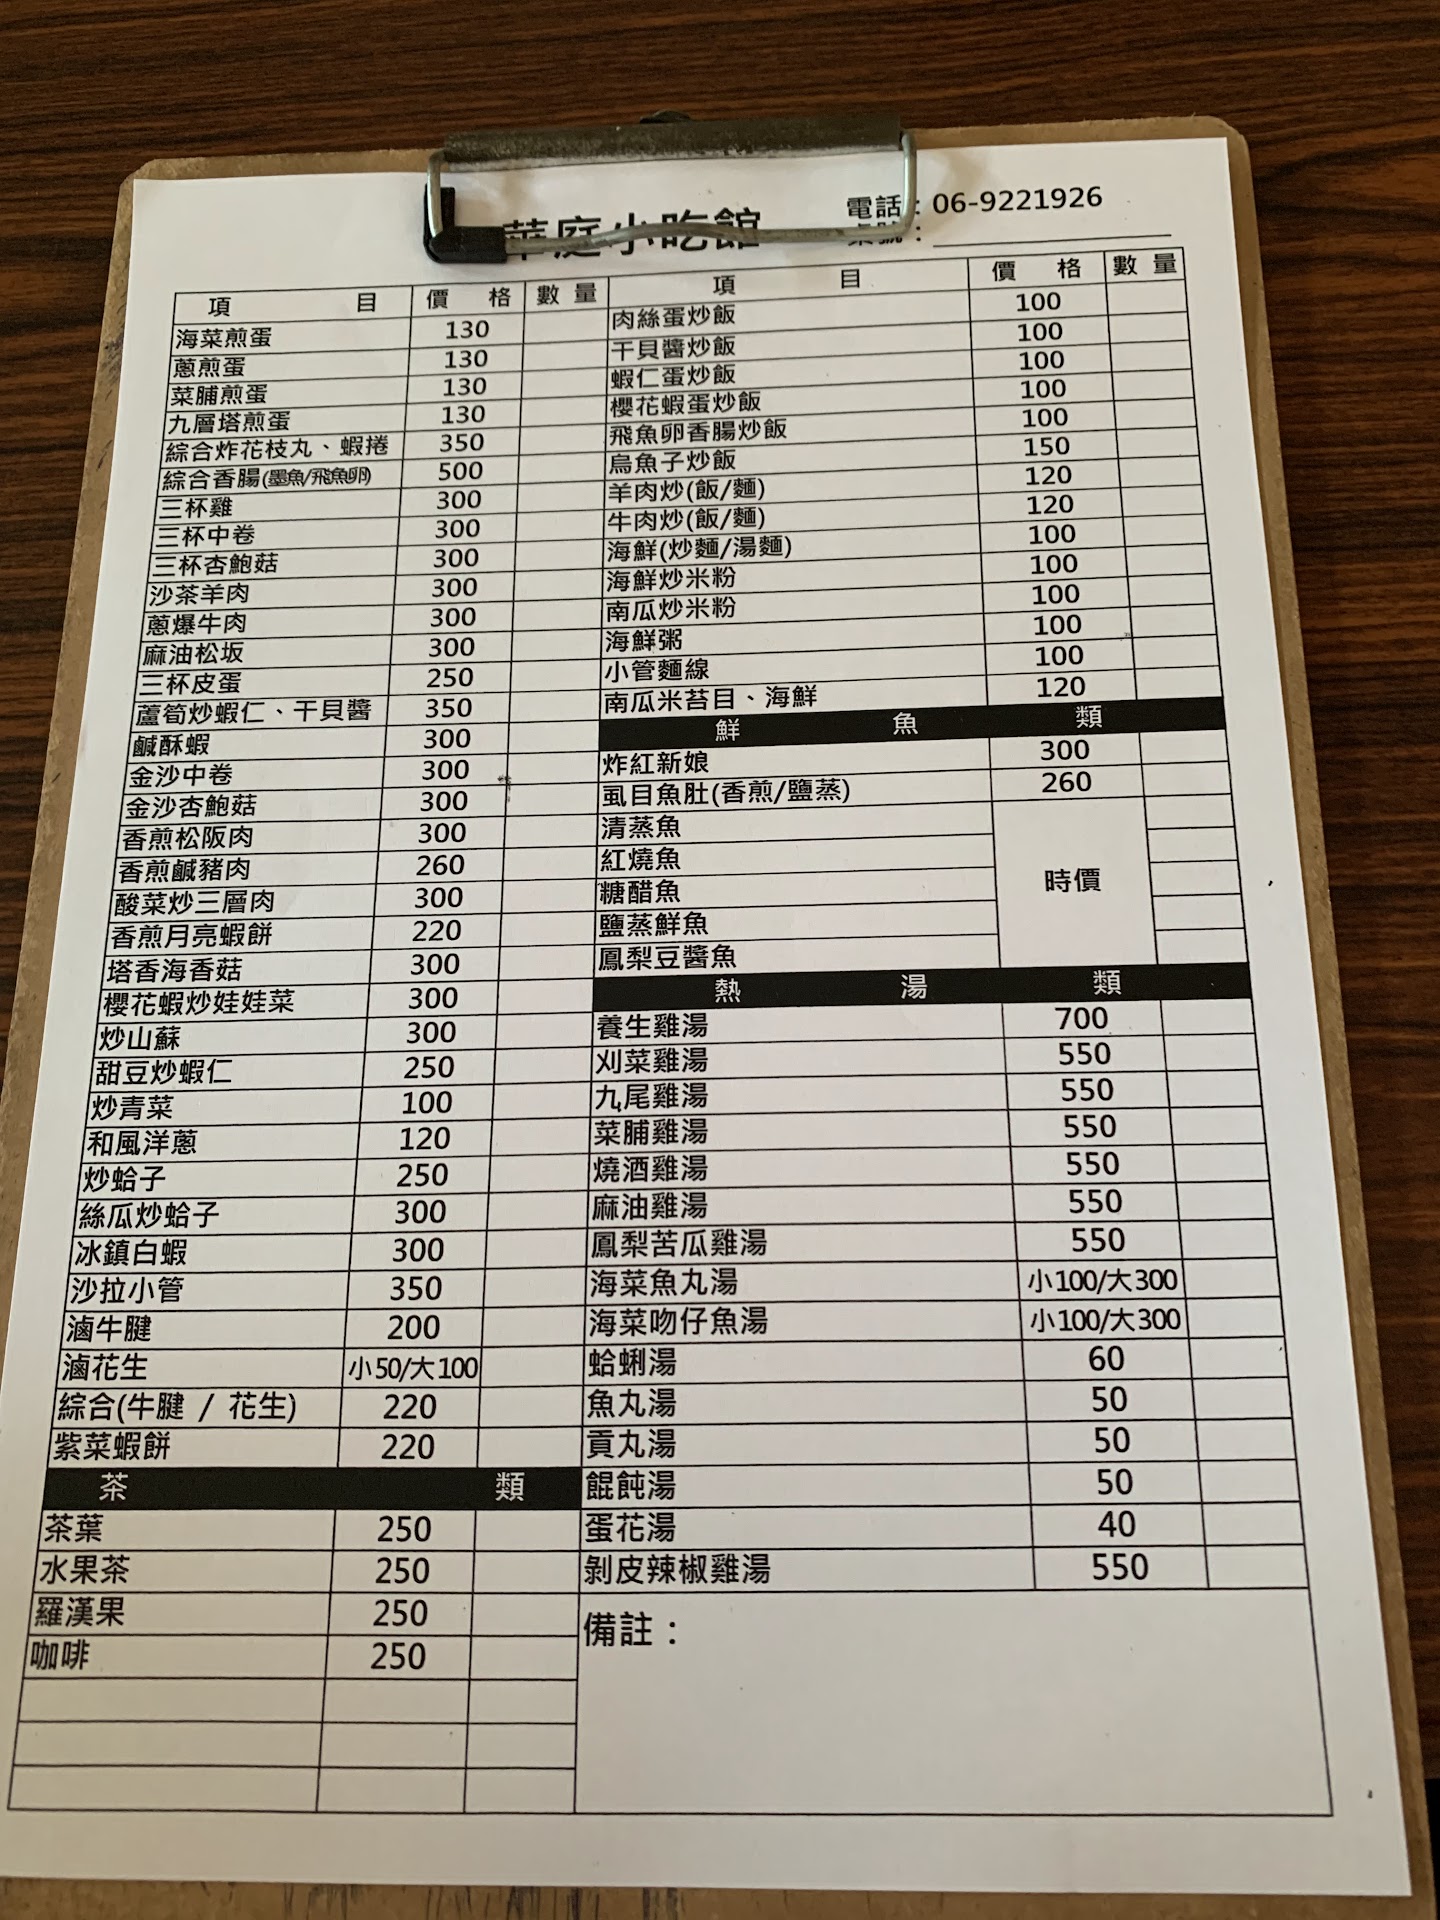 華庭小吃館
電話：06-9221926
桌號：
項 目 價 格 數 量
海菜煎蛋 130
蔥煎蛋 130
菜脯煎蛋 130
九層塔煎蛋 130
綜合炸花枝丸、蝦捲 350
綜合香腸(墨魚/飛魚卵) 500
三杯雞 300
三杯中卷 300
三杯杏鮑菇 300
沙茶羊肉 300
蔥爆牛肉 300
麻油松坂 300
三杯皮蛋 250
蘆筍炒蝦仁、干貝醬 350
鹹酥蝦 300
金沙中卷 300
金沙杏鮑菇 300
香煎松阪肉 300
香煎鹹豬肉 260
酸菜炒三層肉 300
香煎月亮蝦餅 220
塔香海香菇 300
櫻花蝦炒娃娃菜 300
炒山蘇 300
甜豆炒蝦仁 250
炒青菜 100
和風洋蔥 120
炒蛤子 250
絲瓜炒蛤子 300
冰鎮白蝦 300
沙拉小管 350
滷牛腱 200
滷花生 小50/大100
綜合(牛腱 / 花生) 220
紫菜蝦餅 220
茶 類
茶葉 250
水果茶 250
羅漢果 250
咖啡 250
項 目 價 格 數 量
肉絲蛋炒飯 100
干貝醬炒飯 100
蝦仁蛋炒飯 100
櫻花蝦蛋炒飯 100
飛魚卵香腸炒飯 100
烏魚子炒飯 150
羊肉炒(飯/麵) 120
牛肉炒(飯/麵) 120
海鮮(炒麵/湯麵) 100
海鮮炒米粉 100
南瓜炒米粉 100
海鮮粥 100
小管麵線 100
南瓜米苔目、海鮮 120
鮮 魚 類
炸紅新娘 300
虱目魚肚(香煎/鹽蒸) 260
清蒸魚
紅燒魚
糖醋魚 時價
鹽蒸鮮魚
鳳梨豆醬魚
熱 湯 類
養生雞湯 700
刈菜雞湯 550
九尾雞湯 550
菜脯雞湯 550
燒酒雞湯 550
麻油雞湯 550
鳳梨苦瓜雞湯 550
海菜魚丸湯 小100/大300
海菜吻仔魚湯 小100/大300
蛤蜊湯 60
魚丸湯 50
貢丸湯 50
餛飩湯 50
蛋花湯 40
剝皮辣椒雞湯 550
備註：